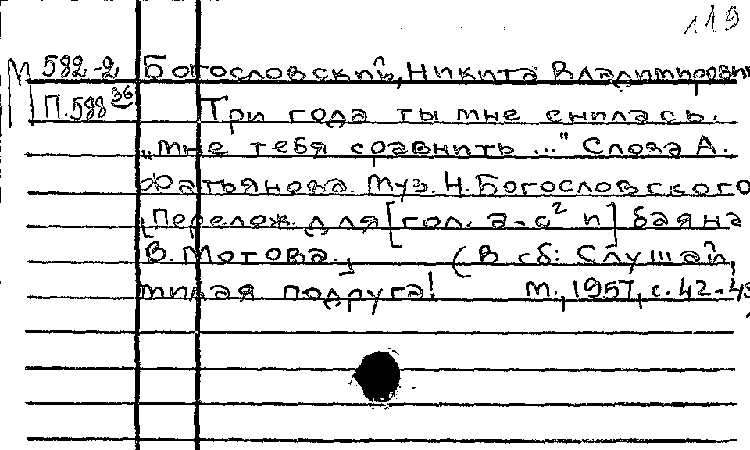 119
М 582-2 Богословский, Никита Владимирович
П.588 36 Три года ты мне снилась.
„Мне тебя сравнить ..." Слова А.
Фатьянова. Муз. Н. Богословского
[Перелож. для [гол. a-c² и] баяна
В. Мотова.] (В сб: Слушай,
милая подруга! М., 1957, с. 42-43